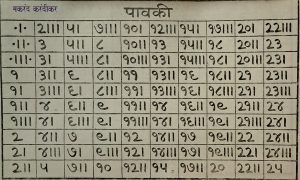 मकरंद करंदीकर
पावकी
·।· २॥। ५। ७॥। १०। १२॥। १५। १७॥। २०। २२॥।
·॥· ३ ५॥ ८ १०॥ १३ १५॥ १८ २०॥ २३
·॥। ३। ५॥। ८। १०॥। १३। १५॥। १८। २०॥। २३।
१ ३॥ ६ ८॥ ११ १३॥ १६ १८॥ २१ २३॥
१। ३॥। ६। ८॥। ११। १३॥। १६। १८॥। २१। २३॥।
१॥ ४ ६॥ ९ ११॥ १४ १६॥ १९ २१॥ २४
१॥। ४। ६॥। ९। ११॥। १४। १६॥। १९। २१॥। २४।
२ ४॥ ७ ९॥ १२ १४॥ १७ १९॥ २२ २४॥
२। ४॥। ७। ९॥। १२। १४॥। १७। १९॥। २२। २४॥।
२॥ ५ ७॥ १० १२॥ १५ १७॥ २० २२॥ २५